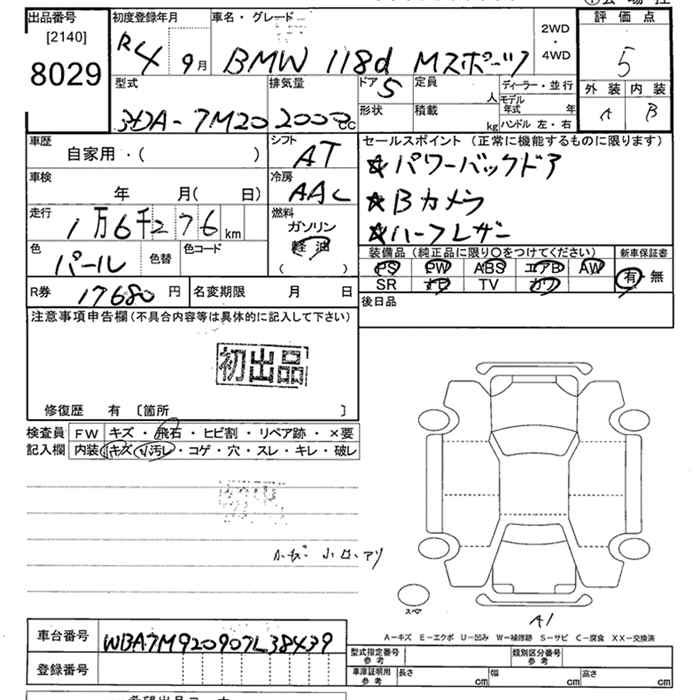 出品番号
[2140]
8029
初度登録年月
R4 9月
車名・グレード
BMW 118d Mスポーツ
2WD
・
4WD
評価点
5
外装 内装
A B
型式
3DA-7M20
排気量
2000cc
ドア 5
定員 人
形状
積載 kg
ディーラー・並行
モデル年式 年
ハンドル 左・右
車歴
自家用・( )
シフト
AT
車検
年 月( 日)
冷房
AAC
走行
1万6千276km
燃料
ガソリン
軽油
( )
色
パール
色替
色コード
R券 17680円
名変期限 月 日
セールスポイント (正常に機能するものに限ります)
★パワーバックドア
★Bカメラ
★ハーフレザー
装備品 (純正品に限り〇をつけてください)
新車保証書
PS PW ABS エアB AW
SR ナビ TV カワ
有・無
後日品
注意事項申告欄(不具合内容等は具体的に記入して下さい)
初出品
修復歴 有 〔箇所 〕
検査員
記入欄
FW キズ・飛石・ヒビ割・リペア跡・×要
内装 キズ・汚レ・コゲ・穴・スレ・キレ・破レ
小キズ 小凹アリ
スペア
A1
A－キズ E－エクボ U－凹み W－補修跡 S－サビ C－腐食 XX－交換済
車台番号 WBA7M920907L38439
登録番号
型式指定番号
参考
類別区分番号
参考
車庫証明用
参考
長さ cm
幅 cm
高さ cm